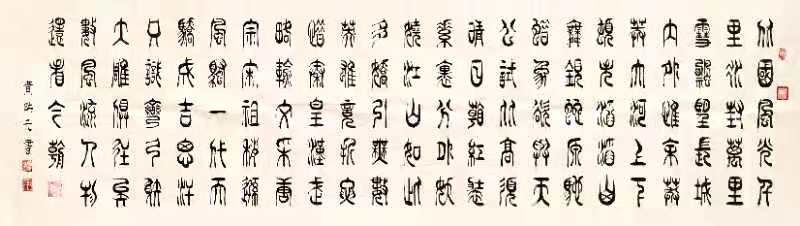 北國風光千
里冰封萬里
雪飄望長城
內外惟余莽
莽大河上下
頓失滔滔山
舞銀蛇原馳
蠟象欲與天
公試比高須
晴日看紅裝
素裹分外妖
嬈江山如此
多嬌引無數
英雄競折腰
惜秦皇漢武
略輸文采唐
宗宋祖稍遜
風騷一代天
驕成吉思汗
只識彎弓射
大雕俱往矣
數風流人物
還看今朝
書